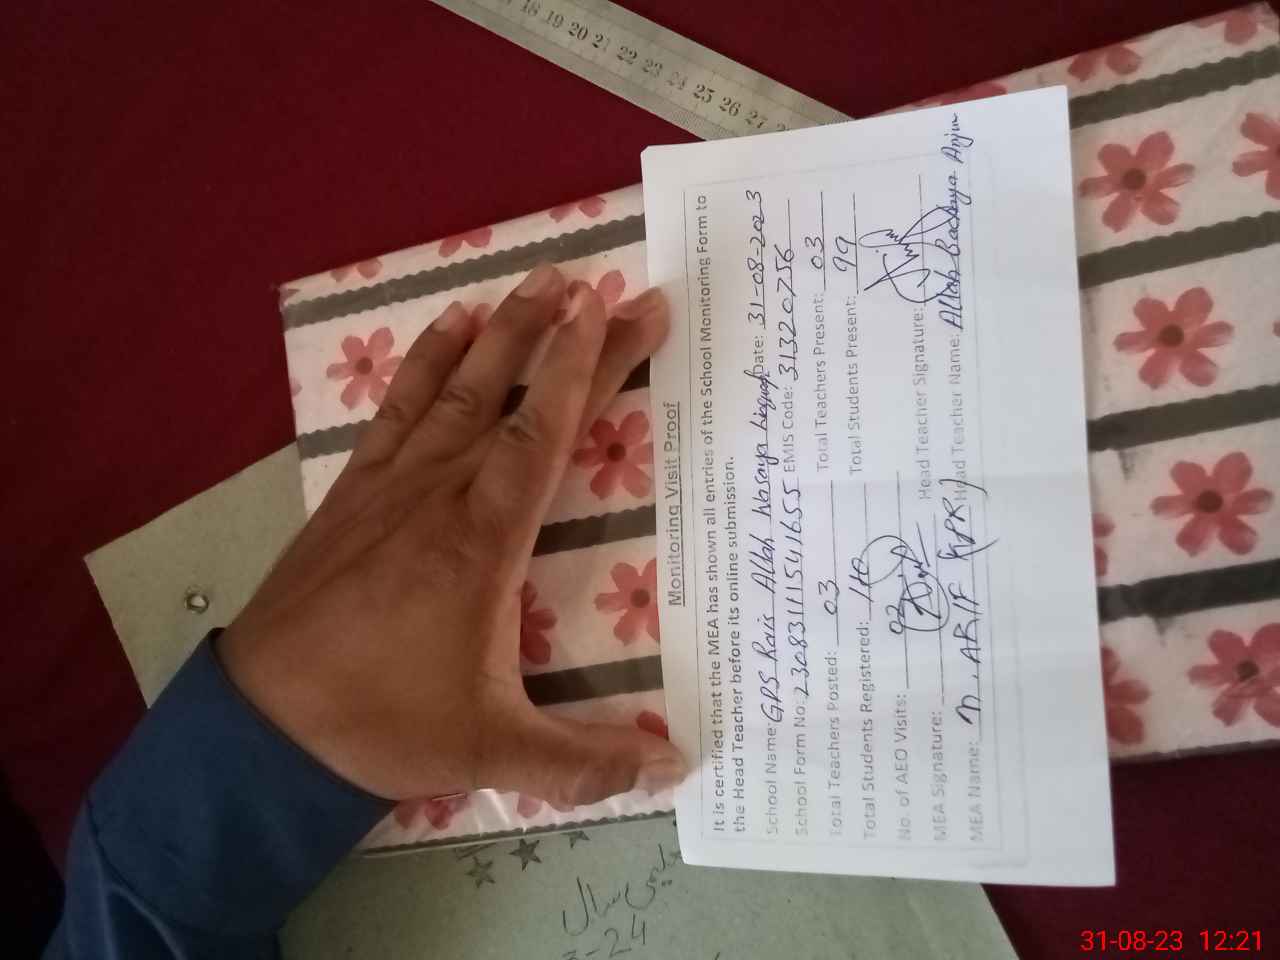 18 19 20 21 22 23 24 25 26 27
Monitoring Visit Proof
It is certified that the MEA has shown all entries of the School Monitoring Form to
the Head Teacher before its online submission.
School Name: GPS Rais Allah Wasaya Date: 31-08-2023
School Form No: 230831111541655 EMIS Code: 31320756
Total Teachers Posted: 03 Total Teachers Present: 03
Total Students Registered: 110 Total Students Present: 99
No. of AEO Visits: 02
MEA Signature: Head Teacher Signature:
MEA Name: M. ARIF (PR) Head Teacher Name: Allah Bachaya Anjum
سال
3-24
31-08-23 12:21